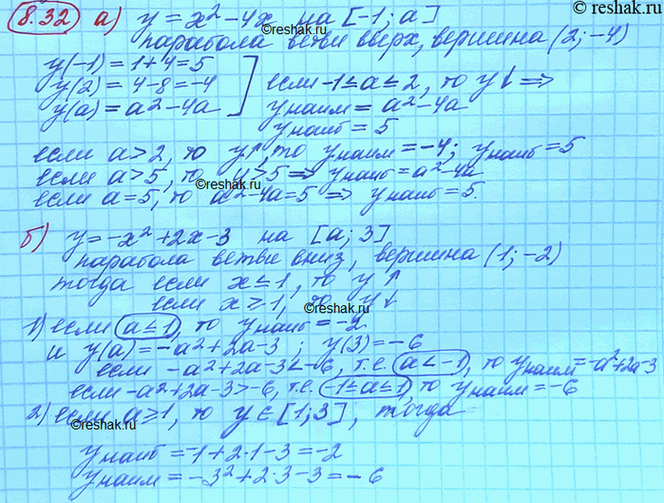 © reshak.ru
8.32 а) y = x² - 4x на [-1; a]
парабола ветви вверх, вершина (2; -4)
y(-1) = 1 + 4 = 5
y(2) = 4 - 8 = -4
y(a) = a² - 4a
] если -1 ≤ a ≤ 2, то y↓ ⇒
yнаим = a² - 4a
yнаиб = 5
если a > 2, то y↑, то yнаим = -4; yнаиб = 5
если a > 5, то y > 5 ⇒ yнаиб = a² - 4a
если a = 5, то a² - 4a = 5 ⇒ yнаиб = 5.
б) y = -x² + 2x - 3 на [a; 3]
парабола ветви вниз, вершина (1; -2)
тогда если x ≤ 1, то y ↑
если x ≥ 1, то y↓
1) если a ≤ 1, то yнаиб = -2
и y(a) = -a² + 2a - 3; y(3) = -6
если -a² + 2a - 3 < -6, т.е. a < -1, то yнаим = -a² + 2a - 3
если -a² + 2a - 3 > -6, т.е. -1 ≤ a ≤ 1, то yнаим = -6
2) если a ≥ 1, то y ∈ [1; 3], тогда
yнаиб = -1 + 2·1 - 3 = -2
yнаим = -3² + 2·3 - 3 = -6
©reshak.ru
©reshak.ru
©reshak.ru
©reshak.ru